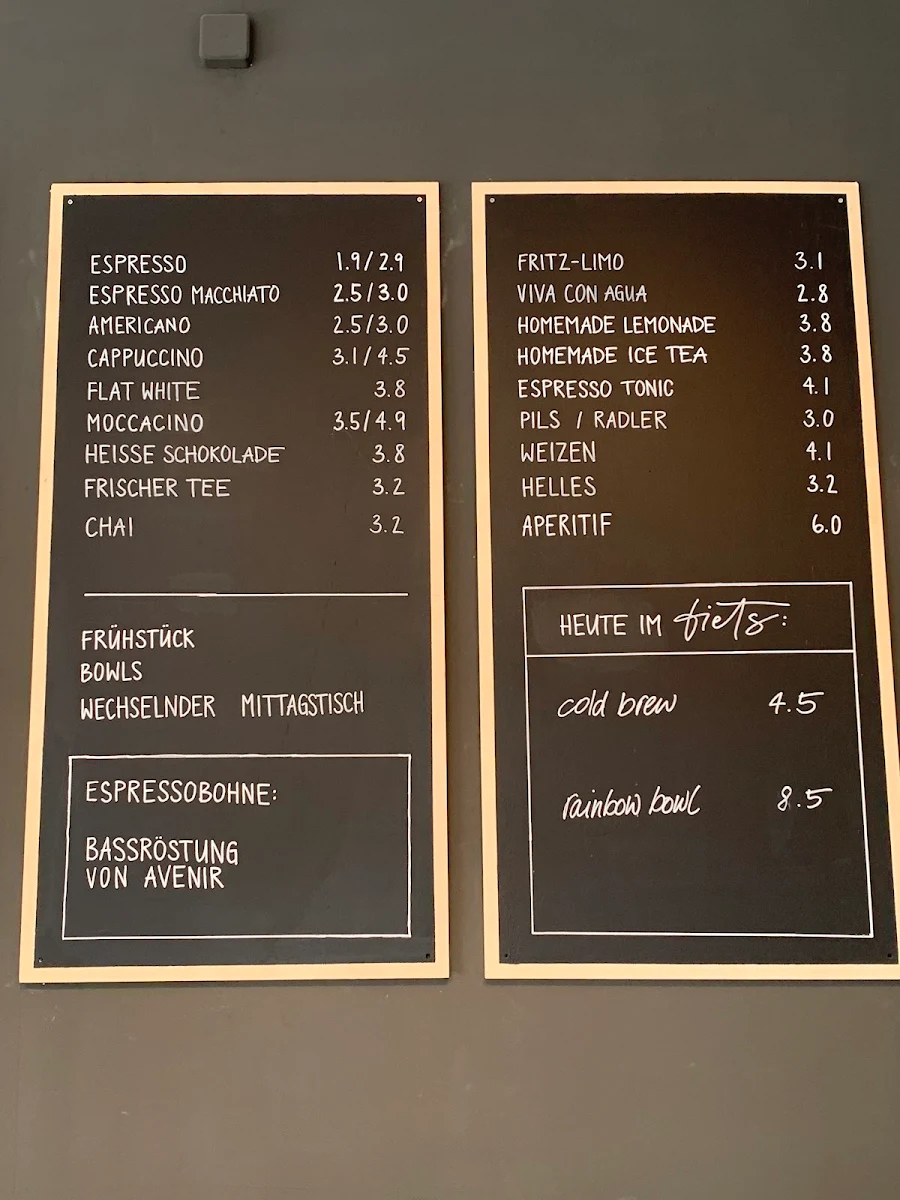 ESPRESSO 1.9/2.9
ESPRESSO MACCHIATO 2.5/3.0
AMERICANO 2.5/3.0
CAPPUCCINO 3.1/4.5
FLAT WHITE 3.8
MOCCACINO 3.5/4.9
HEISSE SCHOKOLADE 3.8
FRISCHER TEE 3.2
CHAI 3.2
FRÜHSTÜCK
BOWLS
WECHSELNDER MITTAGSTISCH
ESPRESSOBOHNE:
BASSRÖSTUNG
VON AVENIR
FRITZ-LIMO 3.1
VIVA CON AGUA 2.8
HOMEMADE LEMONADE 3.8
HOMEMADE ICE TEA 3.8
ESPRESSO TONIC 4.1
PILS / RADLER 3.0
WEIZEN 4.1
HELLES 3.2
APERITIF 6.0
HEUTE IM fiets:
cold brew 4.5
rainbow bowl 8.5